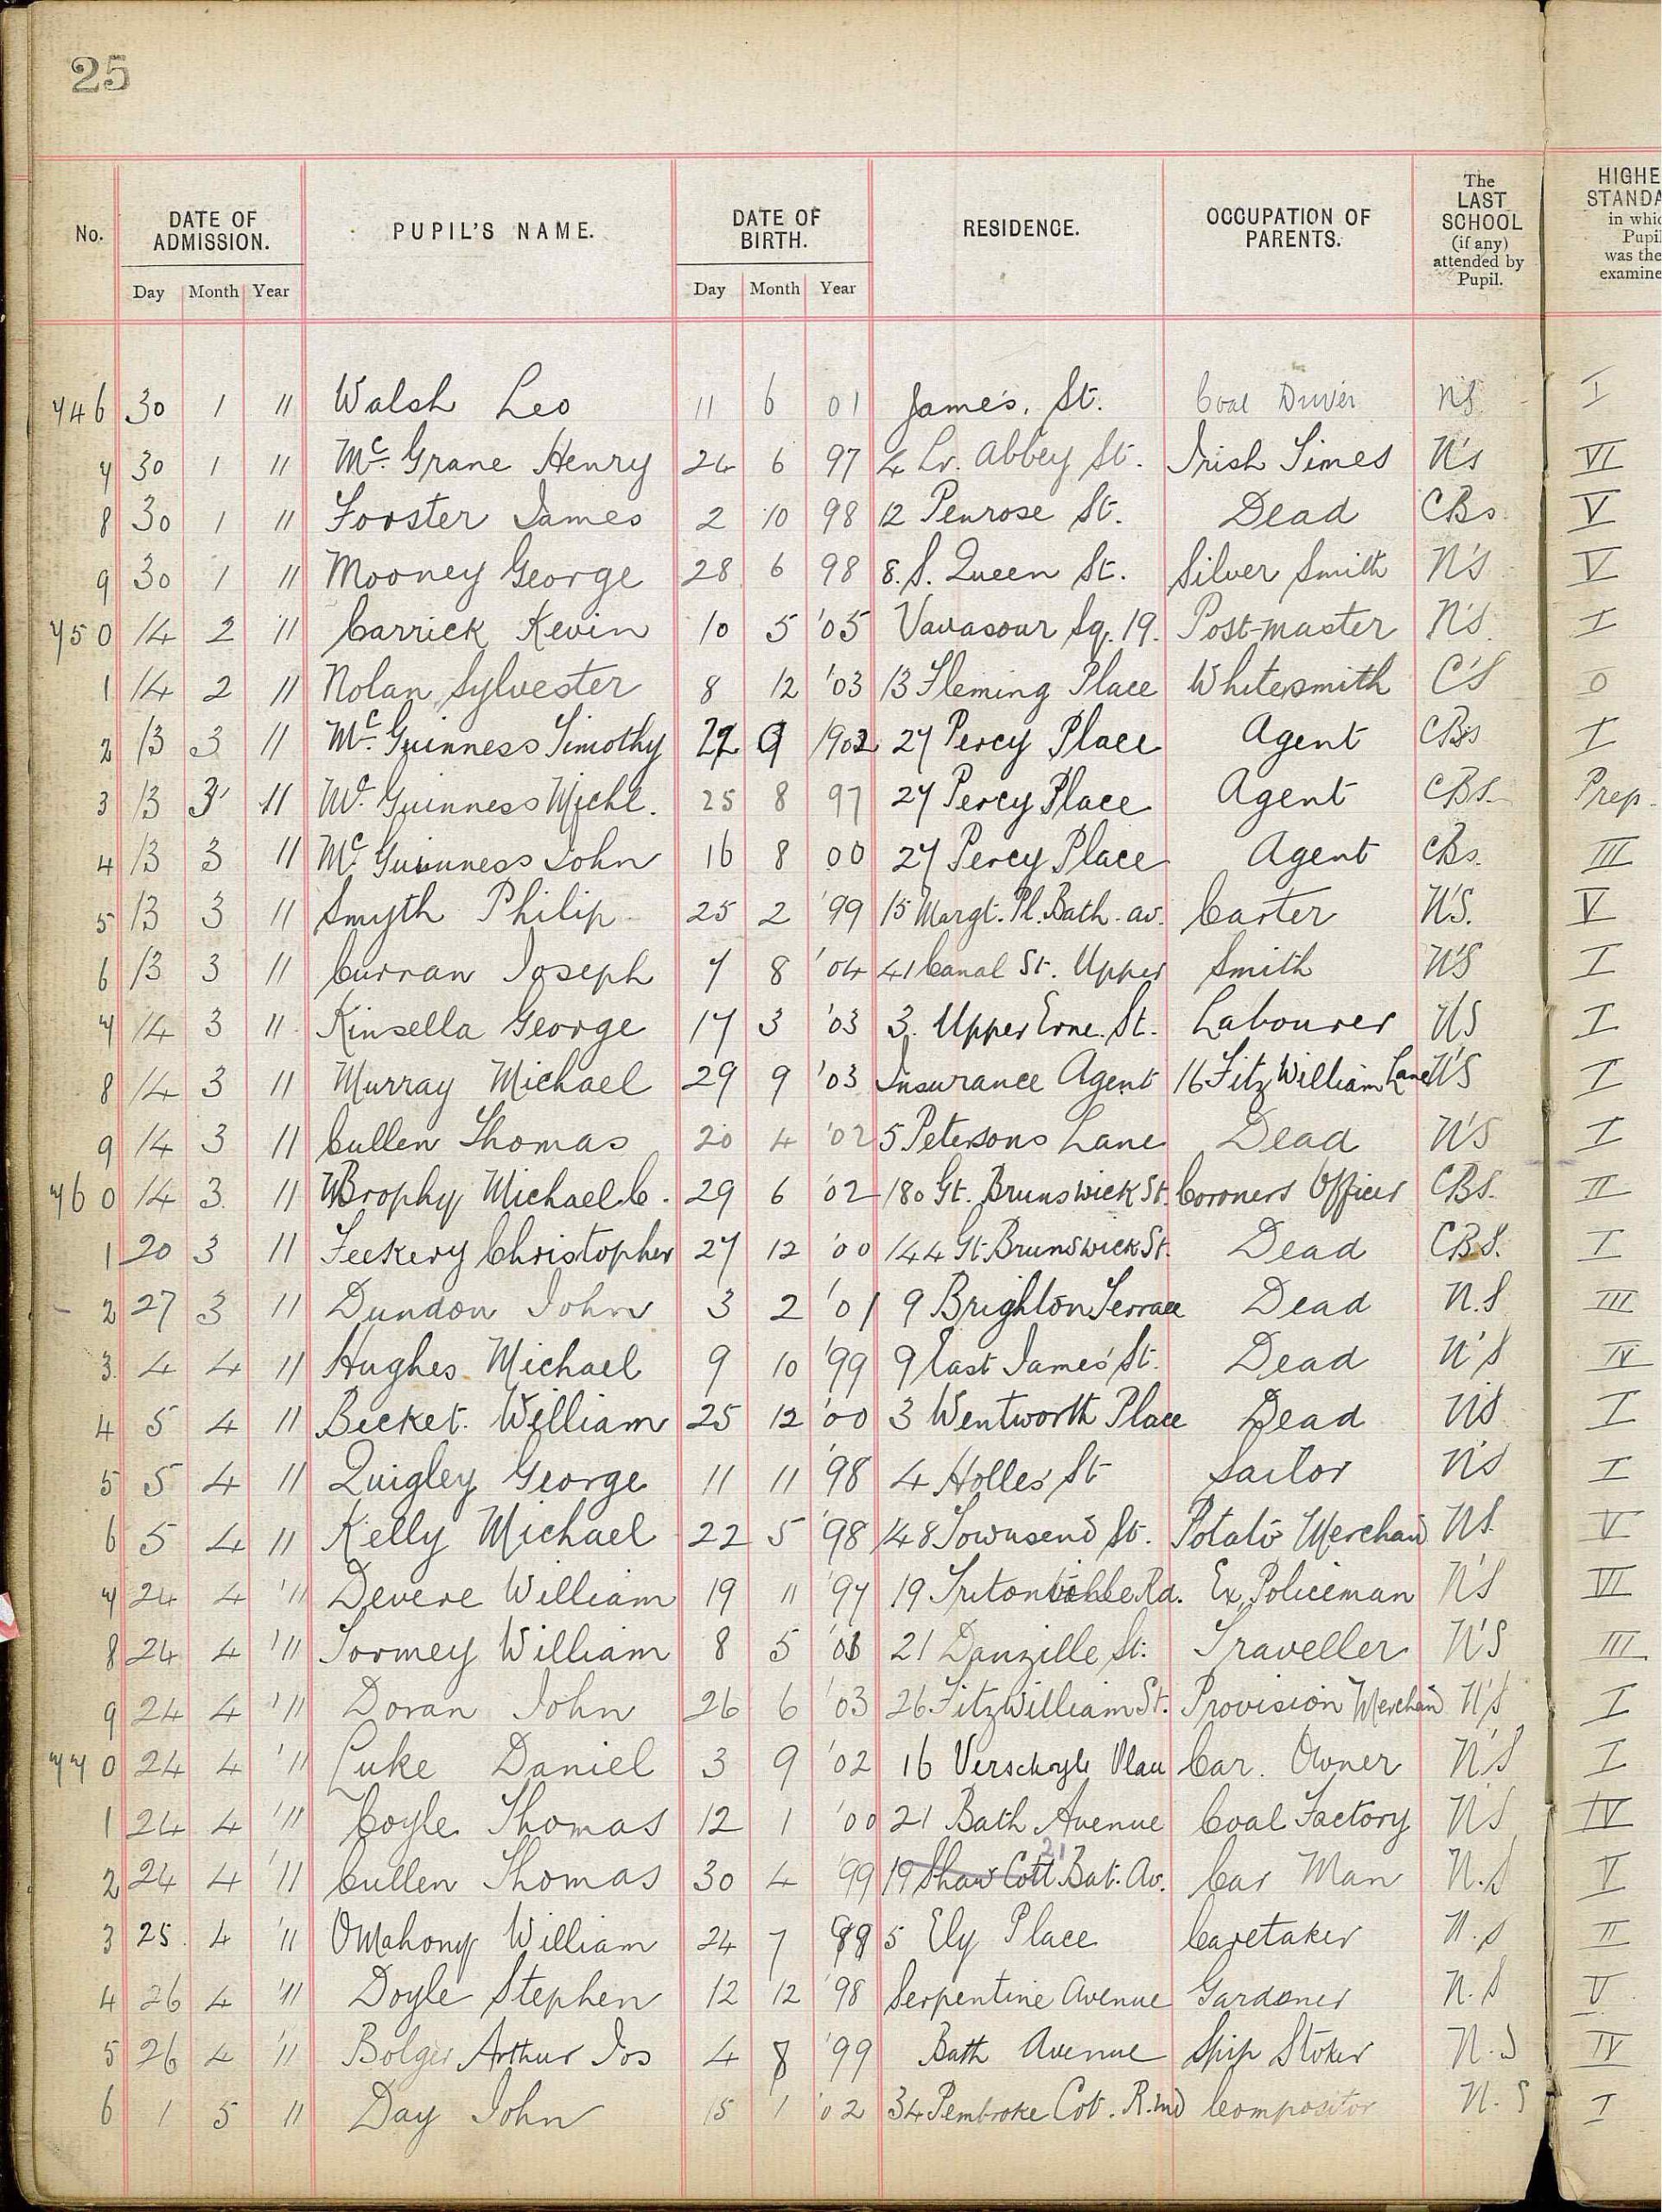 25
No. DATE OF ADMISSION. PUPIL'S NAME. DATE OF BIRTH. RESIDENCE. OCCUPATION OF PARENTS. The LAST SCHOOL (if any) attended by Pupil. HIGHE STANDA in whic Pupil was the examine
Day Month Year Day Month Year
746 30 1 11 Walsh Leo 11 6 01 James. St. Coal Driver NS I
7 30 1 11 Mc. Grane Henry 24 6 97 4 Lr. Abbey St. Irish Times N's VI
8 30 1 11 Forster James 2 10 98 12 Penrose St. Dead CBs. V
9 30 1 11 Mooney George 28 6 98 8. S. Queen St. Silver Smith N'S V
750 14 2 11 Carrick Kevin 10 5 '05 Vavasour Sq. 19. Post-master N'S. I
1 14 2 11 Nolan Sylvester 8 12 '03 13 Fleming Place Whitesmith C'S 0
2 13 3 11 Mc. Guinness Timothy 9 1902 27 Percy Place Agent CBs I
3 13 3 11 Mc. Guinness Michl. 25 8 97 27 Percy Place Agent CBS. Prep.
4 13 3 11 Mc Guinness John 16 8 00 27 Percy Place Agent CBs. III
5 13 3 11 Smyth Philip 25 2 '99 15 Margt. Pl. Bath. av. Carter N'S. V
6 13 3 11 Curran Joseph 7 8 '04 41 Canal St. Upper Smith N'S I
7 14 3 11 Kinsella George 17 3 '03 3. Upper Erne. St. Labourer NS I
8 14 3 11 Murray Michael 29 9 '03 Insurance Agent 16 Fitz William Lane N'S I
9 14 3 11 Cullen Thomas 20 4 '02 5 Petersons Lane Dead N'S I
760 14 3 11 Brophy Michael C. 29 6 '02 180 Gt. Brunswick St. Coroners Officer CBs. II
1 20 3 11 Feekery Christopher 27 12 '00 144 Gt. Brunswick St. Dead CBS. I
2 27 3 11 Dundon John 3 2 '01 9 Brighton Terrace Dead N.S III
3. 4 4 11 Hughes Michael 9 10 '99 9 East James' St. Dead N'S IV
4 5 4 11 Becket. William 25 12 '00 3 Wentworth Place Dead NS I
5 5 4 11 Quigley George 11 11 '98 4 Holles St Sailor N'S I
6 5 4 11 Kelly Michael 22 5 '98 148 Townsend St. Potato Merchant NS. V
7 24 4 '11 Devere William 19 11 '97 19 Tritonville Rd. Ex Policeman N'S VI
8 24 4 '11 Tormey William 8 5 21 Danzille St. Traveller N'S III
9 24 4 '11 Doran John 26 6 '03 26 Fitzwilliam St. Provision Merchant N'S I
770 24 4 '11 Luke Daniel 3 9 '02 16 Verschoyle Place Car. Owner N'S I
1 24 4 '11 Coyle Thomas 12 1 '00 21 Bath Avenue Coal Factory N'S IV
2 24 4 '11 Cullen Thomas 30 4 '99 19 Shaw Cott 21 Bat. Av. Car Man N.S V
3 25 4 '11 OMahony William 24 7 5 Ely Place Caretaker N.S II
4 26 4 '11 Doyle Stephen 12 12 '98 Serpentine Avenue Gardener N.S V
5 26 4 '11 Bolger Arthur Jos 4 8 '99 Bath Avenue Ship Stoker N.S IV
6 1 5 11 Day John 15 1 '02 34 Pembroke Cot. R.end Compositor N.S I